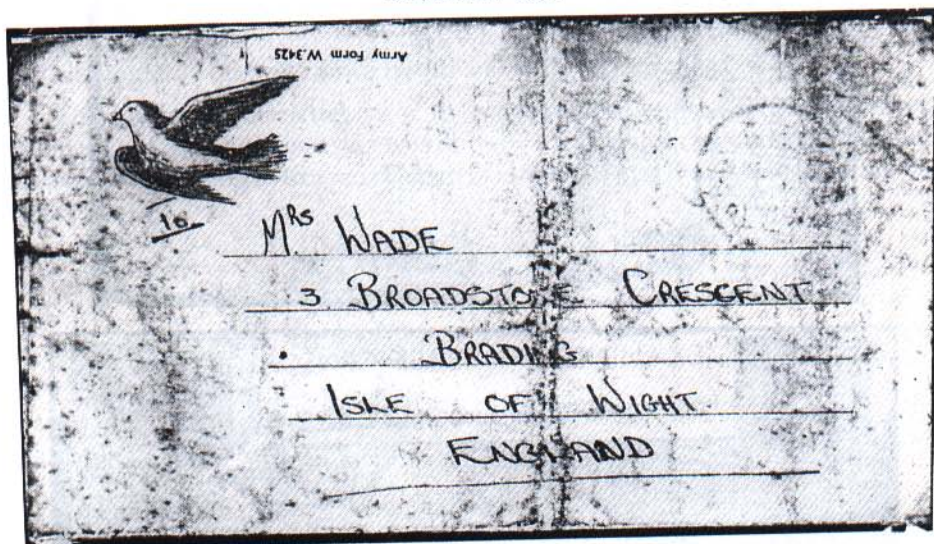 Army Form W.3425
16
Mrs WADE
3 BROADSTONE CRESCENT
BRADING
ISLE OF WIGHT
ENGLAND